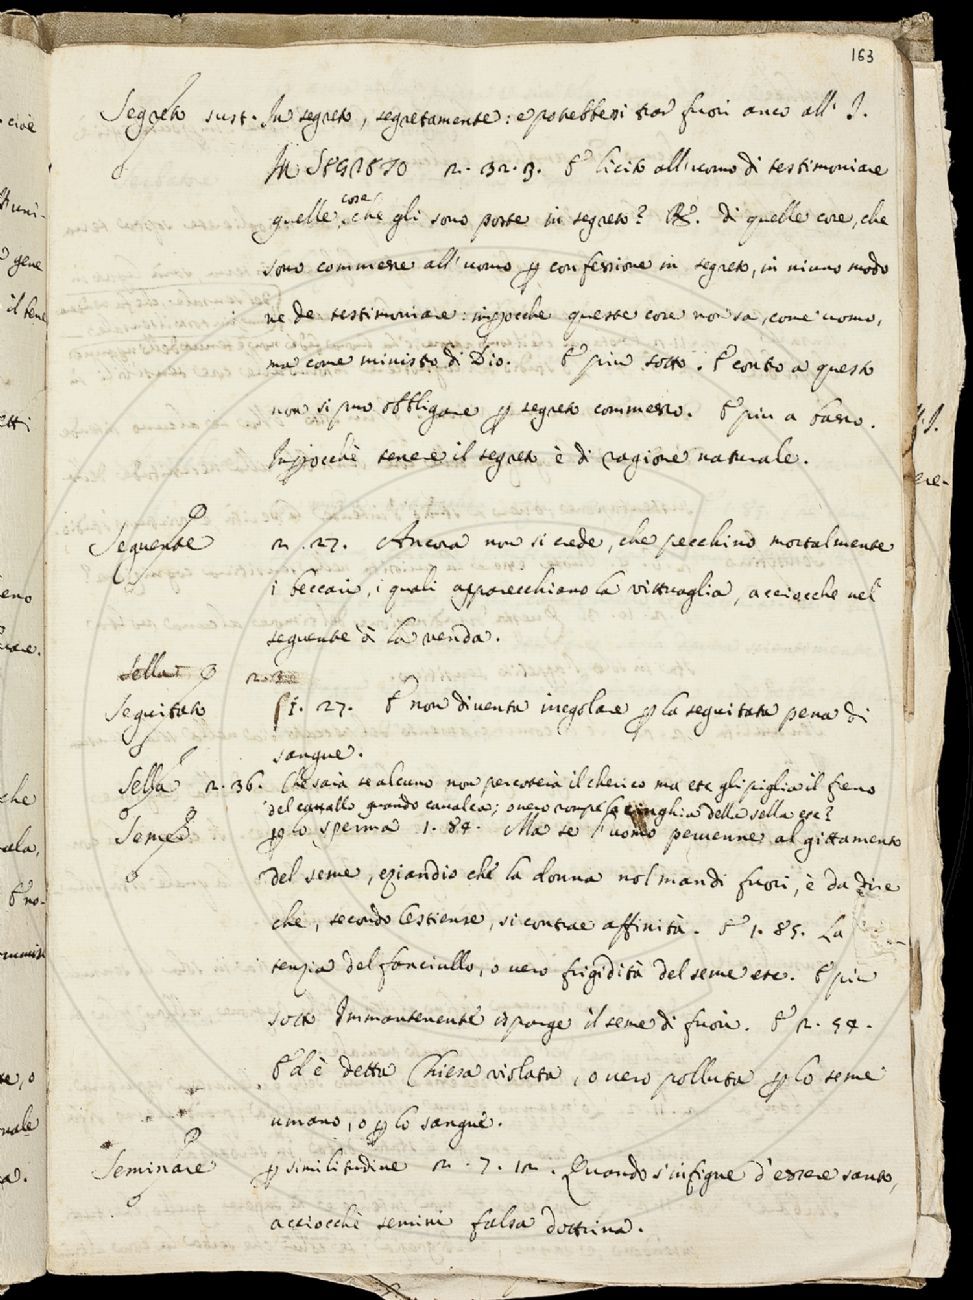 163
Segreto sust. In segreto, segretamente: e potrebbesi trar fuori anco all' I.
IN SEGRETO 2. 32. 3. È licito all'uomo di testimoniare
quelle cose, che gli sono poste in segreto? R. di quelle cose, che
sono commesse all'uomo ꝑ confessione in segreto, in niuno modo
ne de testimoniare: impꝑocche queste cose non sa, come uomo,
ma come ministro di Dio. E più sotto. E contro a questo
non si può obbligare ꝑ segreto commesso. E più a basso.
Impꝑocchè tenere il segreto è di ragione naturale.
Seguente 2. 27. Ancora non si crede, che pecchino mortalmente
i beccari, i quali apparecchiano la vittuaglia, acciocche nel
seguente dì la venda.
Sella 2.
Seguitato 1. 27. E non diventa inregolare ꝑ la seguitata pena di
sangue.
Sella 2. 36. Che sarà se alcuno non percoterà il cherico ma ese gli piglia il freno
del cavallo quando cavalca; overo rompe la cinghia della sella ese?
Seme ꝑ lo sperma 1. 84. Ma se l'uomo pervenne al gittamento
del seme, eziandio chè la donna nol mandi fuori, è da dire
che, secondo l'estiense, si contrae affinità. E 1. 85. La
tenzia del fanciullo, o vero frigidità del seme etc. E più
sotto Immantenente isparge il seme di fuori. E 2. 54.
Ed è detta Chiesa violata, o vero polluta ꝑ lo seme
umano, o ꝑ lo sangue.
Seminare ꝑ similitudine 2. 7. 12. Quando s'infigne d'essere santo,
acciocchè semini falsa dottrina.